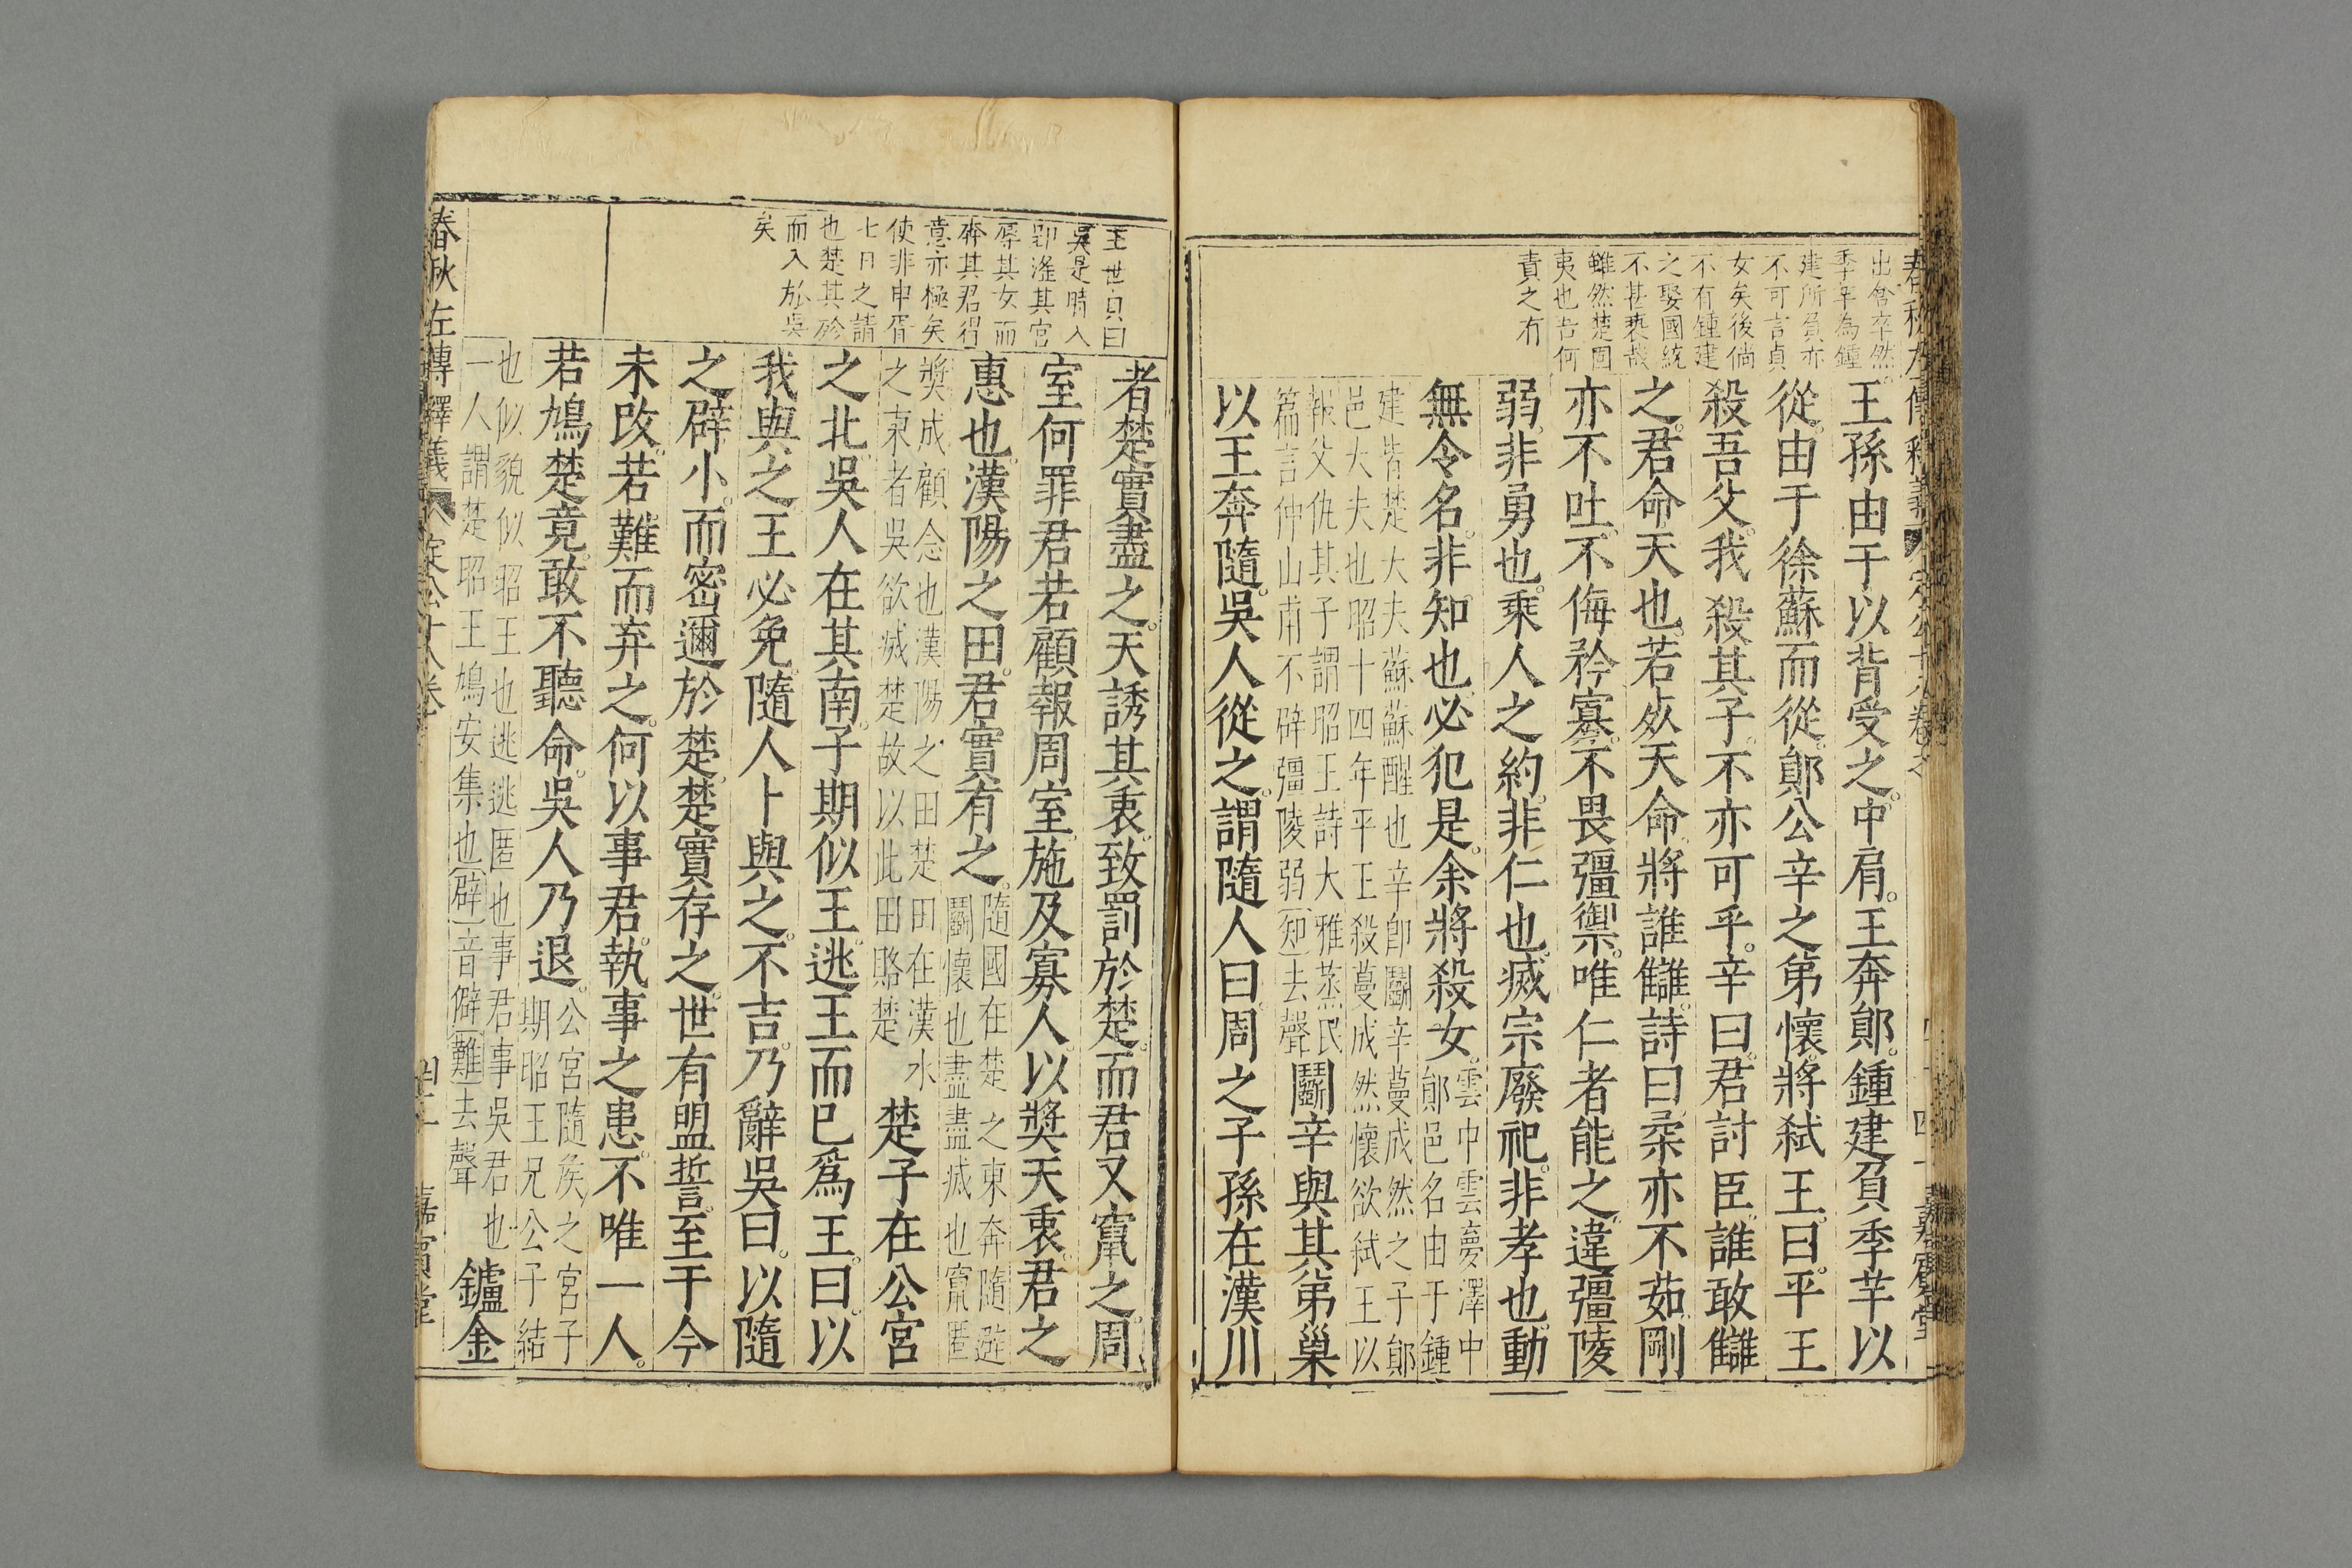 出奮卒然
季芊為鍾
建所負亦
不可言貞
女矣後倘
不有鍾建
之娶國統
不甚褻哉
雖然楚固
夷也吾何
責之有
王孫由于以背受之中肩王奔鄖鍾建負季芊以
從由于徐蘇而從鄖公辛之弟懷將弑王曰平王
殺吾父我殺其子不亦可乎辛曰君討臣誰敢讎
之君命天也若死天命將誰讎詩曰柔亦不茹剛
亦不吐不侮矜寡不畏彊禦唯仁者能之違彊陵
弱非勇也乘人之約非仁也滅宗廢祀非孝也動
無令名非知也必犯是余將殺女
雲中雲夢澤中
鄖邑名由于鍾
建皆楚大夫蘇蘇醒也辛卽鬬辛蔓成然之子鄖
邑大夫也昭十四年平王殺蔓成然懷欲弑王以
報父仇其子謂昭王詩大雅蒸民
篇言仲山甫不辟彊陵弱知去聲
鬬辛與其弟巢
以王奔隨吳人從之謂隨人曰周之子孫在漢川
王世貞曰
吳是時入
郢淫其宮
辱其女而
奔其君得
意亦極矣
使非申胥
七日之請
也楚其殄
而入於吳
矣
者楚實盡之天誘其衷致罰於楚而君又竄之周
室何罪君若顧報周室施及寡人以奬天衷君之
惠也漢陽之田君實有之
隨國在楚之東奔隨避
鬬懷也盡盡滅也竄匿
奬成顧念也漢陽之田楚田在漢水
之東者吳欲滅楚故以此田賂楚
楚子在公宮
之北吳人在其南子期似王逃王而已爲王曰以
我與之王必免隨人卜與之不吉乃辭吳曰以隨
之辟小而密邇於楚楚實存之世有盟誓至于今
未改若難而弃之何以事君執事之患不唯一人
若鳩楚竟敢不聽命吳人乃退
公宮隨矦之宮子
期昭王兄公子結
也似貌似昭王也逃逃匿也事君事吳君也
一人謂楚昭王鳩安集也辟音僻難去聲
鑪金
春秋左傳釋義
定公十八卷
嘉賓堂